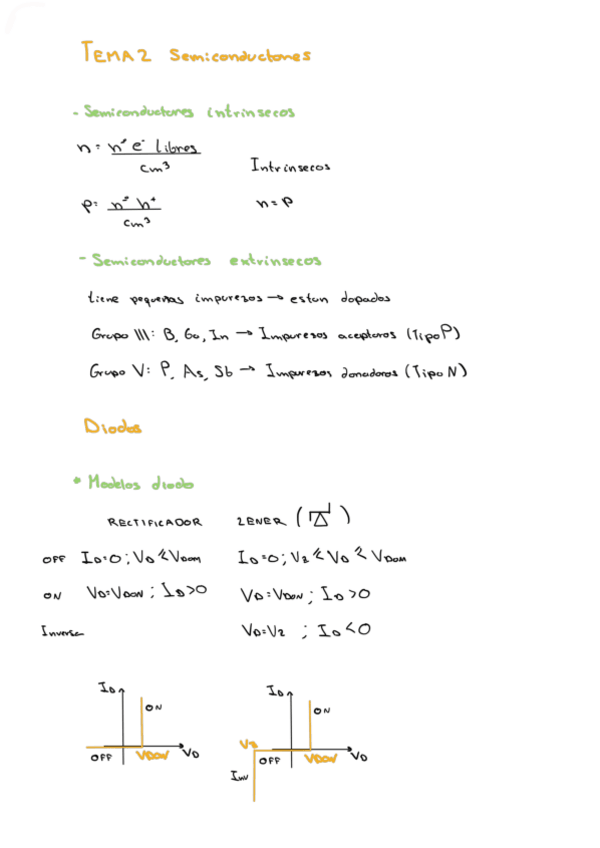 TEMA 2 Semiconductores
- Semiconductores intrínsecos
n = nº e⁻ libres / cm³
Intrínsecos
p = nº h⁺ / cm³
n = p
- Semiconductores extrínsecos
tiene pequeñas impurezas → estan dopados
Grupo III: B, Ga, In → Impurezas aceptoras (Tipo P)
Grupo V: P, As, Sb → Impurezas donadoras (Tipo N)
Diodos
* Modelos diodo
RECTIFICADOR ZENER ( )
OFF I_D=0 ; V_D ≤ V_DON I_D=0 ; V_Z ≤ V_D ≤ V_DON
ON V_D=V_DON ; I_D>0 V_D=V_DON ; I_D>0
Inversa V_D=V_Z ; I_D<0
I_D
ON
OFF
V_DON
V_D
I_D
ON
V_Z
OFF
V_DON
V_D
Inv